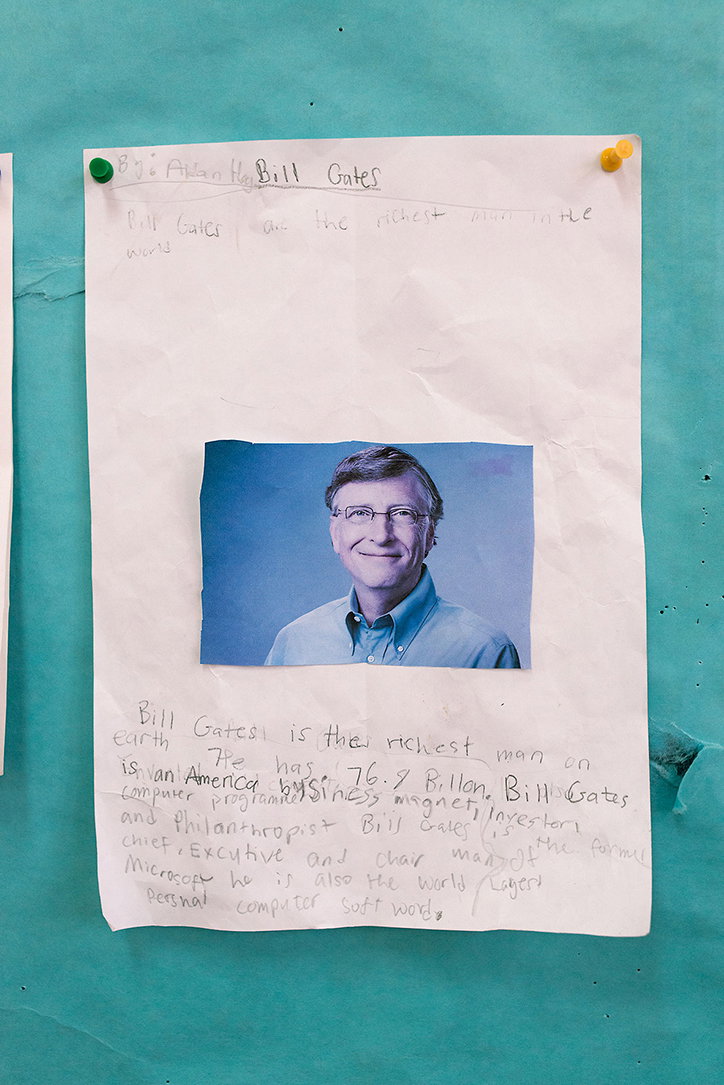 By: Aidan Bill Gates
Bill Gates are the richest man in the
world
Bill Gates is the richest man on
earth He has 76.8 Billon. Bill Gates
is an America bysiness magnet, Investor,
computer programme
and Philanthropist Bill Gates is the former
chief, Excutive and chair man of
Microsoft he is also the world Lagest
Persnal computer soft word.